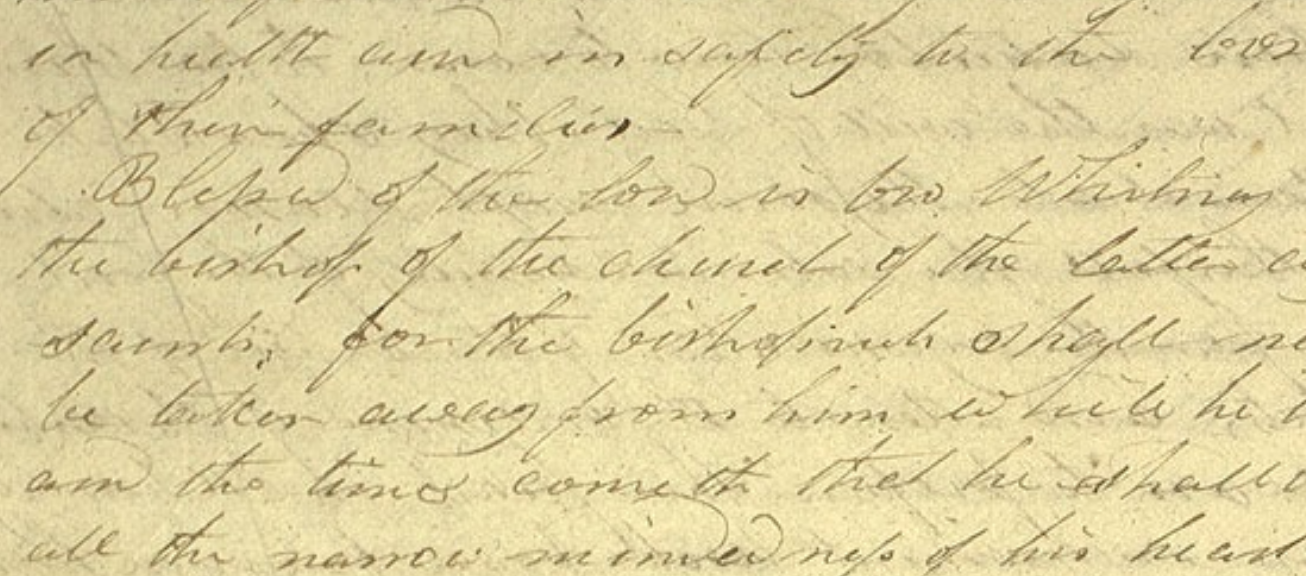 in health and in safety to the
of their families
Blessed of the lord is bro Whitney
the bishop of the church of the latter
saints, for the bishoprick shall
be taken away from him while he
and the time cometh that he shall
all the narrow mindedness of his heart